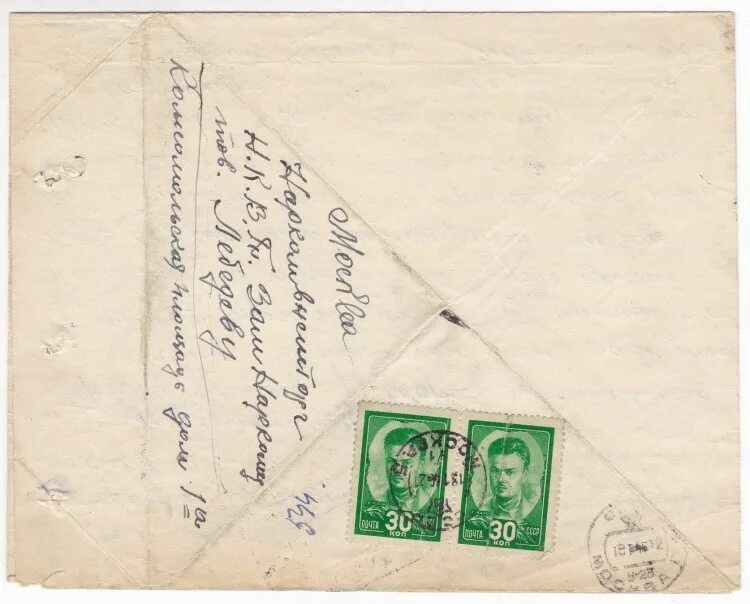 Москва
Наркомвнешторг
Н.К.В.Т. Зам Наркому
тов. Лебедеву
Комсомольская площадь дом 1а
ПОЧТА 30 КОП
30 КОП ПОЧТА СССР
МОСКВА